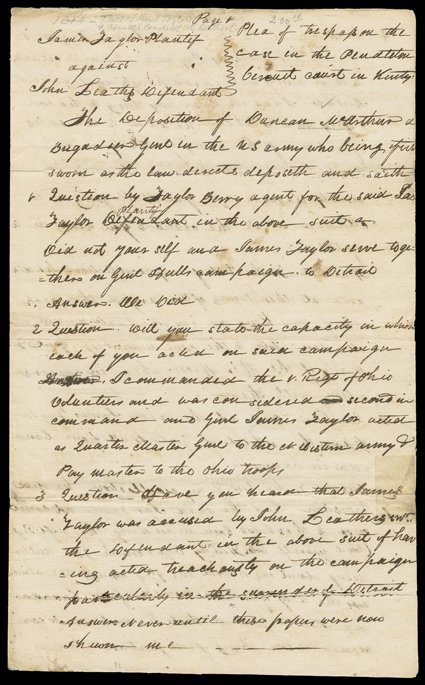 Page 1
James Taylor Plantif
against
John Leathers Defendant
Plea of trespass on the
case in the Pendleton
Circuit court in Kinty
The Deposition of Duncan McArthur a
Brigadeer Genl in the US army who being first
sworn as the law derects deposeth and saith
1 Question by Taylor Berry agent for the said Jas
Taylor Defendant plantif in the above suit
Did not your self and James Taylor serve toge-
ther on Genl Hulls campaign to Detroit
Answer. We Did
2 Question. Will you state the capacity in which
each of you acted on said campaign
Answer I commanded the 1 Regt of Ohio
Volunteers and was considered second in
command and Genl James Taylor acted
as Quarter Master Genl to the N Western army &
Pay master to the Ohio troops
3 Question Have you heard that James
Taylor was accused by John Leathers
the Defendant in the above suit of hav
eing acted treachously on the campaign
particularly in the surrender of Detroit
Answer Never until these papers were now
shewn me